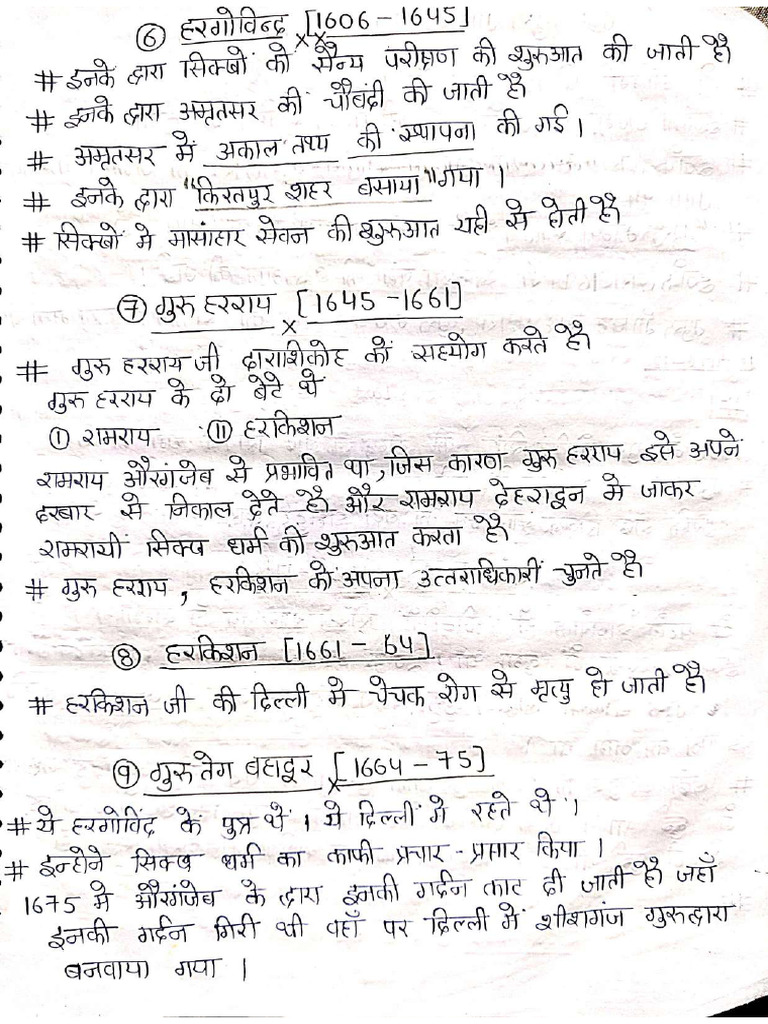 ⑥ हरगोविन्द [1606 - 1645]
# इनके द्वारा सिक्खों को सैन्य परीक्षण की शुरुआत की जाती है
# इनके द्वारा अमृतसर की चौबंदी की जाती है
# अमृतसर में अकाल तख्य की स्थापना की गई।
# इनके द्वारा "किरतपुर शहर बसाया" गया।
# सिक्खों मे मासांहार सेवन की शुरुआत यही से होती है
⑦ गुरु हरराय [1645 - 1661]
# गुरु हरराय जी दाराशिकोह को सहयोग करते है
गुरु हरराय के दो बेटे थे
① रामराय ⑪ हरकिशन
रामराय औरगंजेब से प्रभावित था, जिस कारण गुरु हरराय इसे अपने
दरबार से निकाल देते है। और रामराय देहरादून मे जाकर
रामरायी सिक्ख धर्म की शुरुआत करता है
# गुरु हरराय, हरकिशन को अपना उत्तराधिकारी चुनते है
⑧ हरकिशन [1661 - 64]
# हरकिशन जी की दिल्ली मे चेचक रोग से मृत्यु हो जाती है
⑨ गुरु तेग बहादूर [1664 - 75]
# ये हरगोविंद के पुत्र थें। ये दिल्ली में रहते थे।
# इन्होने सिक्ख धर्म का काफी प्रचार - प्रसार किया।
1675 मे औरगंजेब के द्वारा इनकी गर्दन काट दी जाती है जहाँ
इनकी गर्दन गिरी थी वहाँ पर दिल्ली में शीशगंज गुरुद्वारा
बनवाया गया।